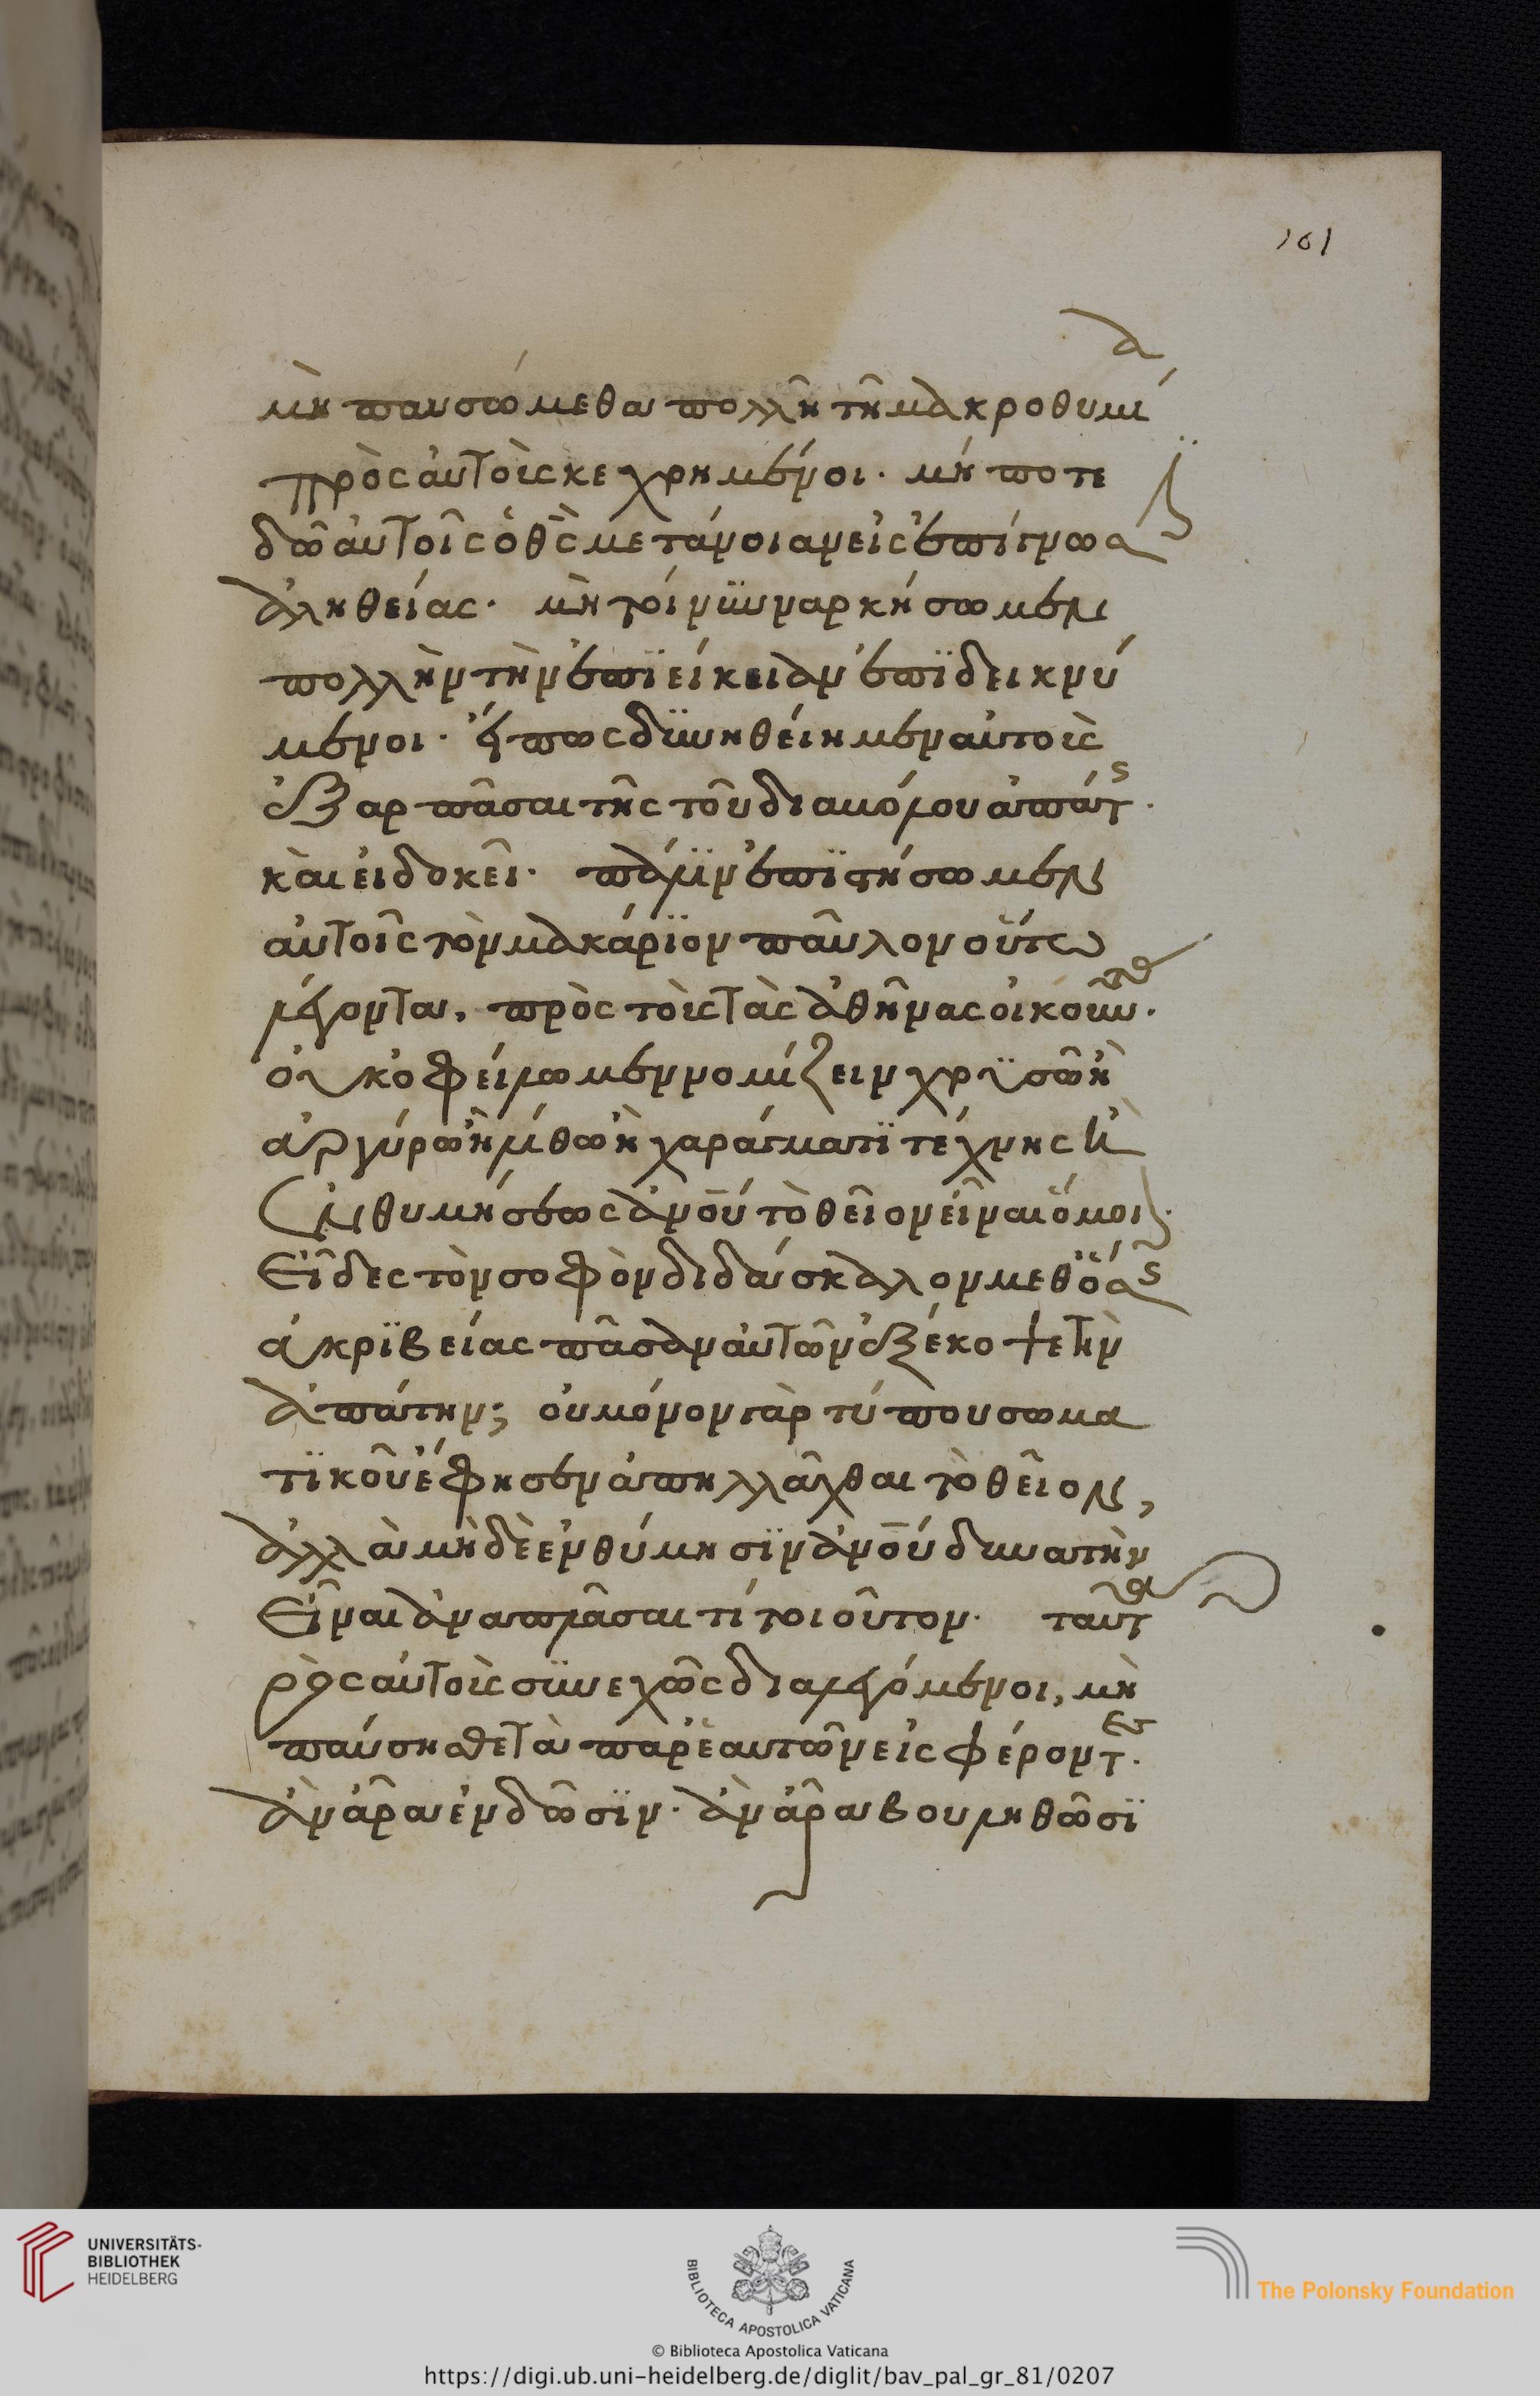 101
μὴ παυσώμεθα πολλῆ τῆ μακροθυμία
πρὸς αὐτοὺς κεχρημένοι. μή ποτε
δῶ αὐτοῖς ὁ θς μετάνοιαν εἰς ἐπίγνωσιν
ἀληθείας. μὴ τοίνυν ναρκήσωμεν
πολλὴν τὴν ἐπϊείκειαν ἐπϊδεικνύ
μενοι. εἴ πως δυνηθείημεν αὐτοὺς
ἐξαρπάσαι τῆς τοῦ διαβόλου ἀπάτης.
καὶ εἰ δοκεῖ. πάλϊν ἐπϊστήσωμεν
αὐτοῖς τὸν μακάρϊον παῦλον οὕτω
λέγοντα, πρὸς τοὺς τὰς ἀθήνας οἰκοῦντας.
οὐκ ὀφείλωμεν νομίζειν χρυσῶ ἢ
ἀργύρω ἢ λίθω ἢ χαράγματϊ τέχνης καὶ
ἐνθυμήσεως ἀνου τὸ θεῖον εἶναι ὅμοιον.
Εἶδες τὸν σοφὸν διδάσκαλον μεθ ὅσης
ἀκρϊβείας πᾶσαν αὐτῶν ἐξέκοψε τὴν
ἀπάτην; οὐ μόνον γὰρ τύπου σωμα
τϊκοῦ ἔφησεν ἀπηλλάχθαι τὸ θεῖον,
ἀλλὰ μὴ δὲ ἐνθύμησϊν ἀνου δυνατὴν
Εἶναι ἀναπλάσαι τί τοιοῦτον. ταῦτα
πρὸς αὐτοὺς συνεχῶς διαλεγόμενοι, μὴ
παύσησθε τὰ παρ ἑαυτῶν εἰσφέροντες.
ἂν ἆρα ἐνδῶσϊν. ἂν ἆρα βουληθῶσϊ
UNIVERSITÄTS-
BIBLIOTHEK
HEIDELBERG
BIBLIOTECA APOSTOLICA VATICANA
The Polonsky Foundation
© Biblioteca Apostolica Vaticana
https://digi.ub.uni-heidelberg.de/diglit/bav_pal_gr_81/0207